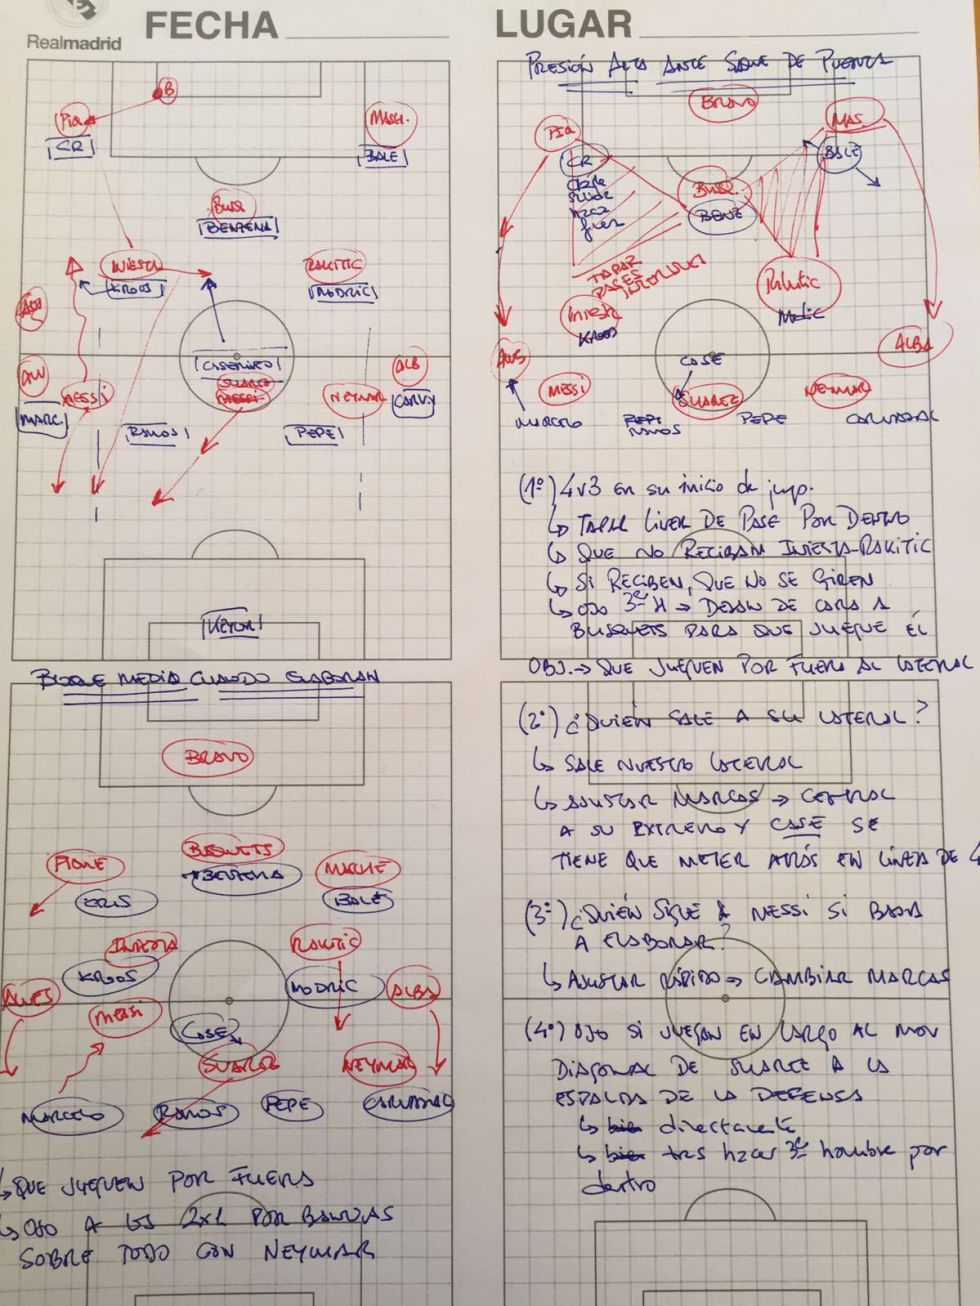 Realmadrid
FECHA
LUGAR
B
Piq
CR
MASCH.
BALE
Busq
BENZEMA
INIESTA
KROOS
RAKITIC
MODRIC
CASEMIRO
SUAREZ
MESSI
MESSI
NEYMAR
ALB
CARV
MARC
RAMOS
PEPE
KEYLOR
PRESIÓN ALTA ANTE SAQUE DE PUERTA
BRAVO
Piq
MAS.
CR
BALE
Busq.
BENZ
TAPAR
PASES
Iniesta
KROOS
Rakitic
Modric
ALVS
CASE
ALBA
MESSI
SUAREZ
NEYMAR
MARCELO
PEPE
RAMOS
PEPE
CARVAJAL
(1º) 4v3 en su inicio de jug.
↳ TAPAR LINEA DE PASE POR DENTRO
↳ QUE NO RECIBAN INIESTA-RAKITIC
↳ SI RECIBEN, QUE NO SE GIREN
↳ OJO 3er H → DEJAN DE CARA A
BUSQUETS PARA QUE JUEGUE ÉL
OBJ. → QUE JUEGUEN POR FUERA AL LATERAL
BLOQUE MEDIO CUANDO ELABORAN
BRAVO
PIQUE
BUSQUETS
BENZEMA
MASCHE
CRIS
BALE
INIESTA
KROOS
RAKITIC
MODRIC
ALVES
MESSI
CASE
ALBA
SUAREZ
NEYMAR
MARCELO
RAMOS
PEPE
CARVAJAL
↳ QUE JUEGUEN POR FUERA
↳ OJO A LOS 2x1 POR BANDAS
SOBRE TODO CON NEYMAR
(2º) ¿QUIÉN SALE A SU LATERAL?
↳ SALE NUESTRO LATERAL
↳ AJUSTAR MARCAS → CENTRAL
A SU EXTREMO Y CASE SE
TIENE QUE METER ATRÁS EN LÍNEA DE 4
(3º) ¿QUIÉN SIGUE A MESSI SI BAJA
A ELABORAR?
↳ AJUSTAR RÁPIDO → CAMBIAR MARCAS
(4º) OJO SI JUEGAN EN LARGO AL MOV
DIAGONAL DE SUAREZ A LA
ESPALDA DE LA DEFENSA
↳ bien directamente
↳ bien tras hacer 3er hombre por
dentro